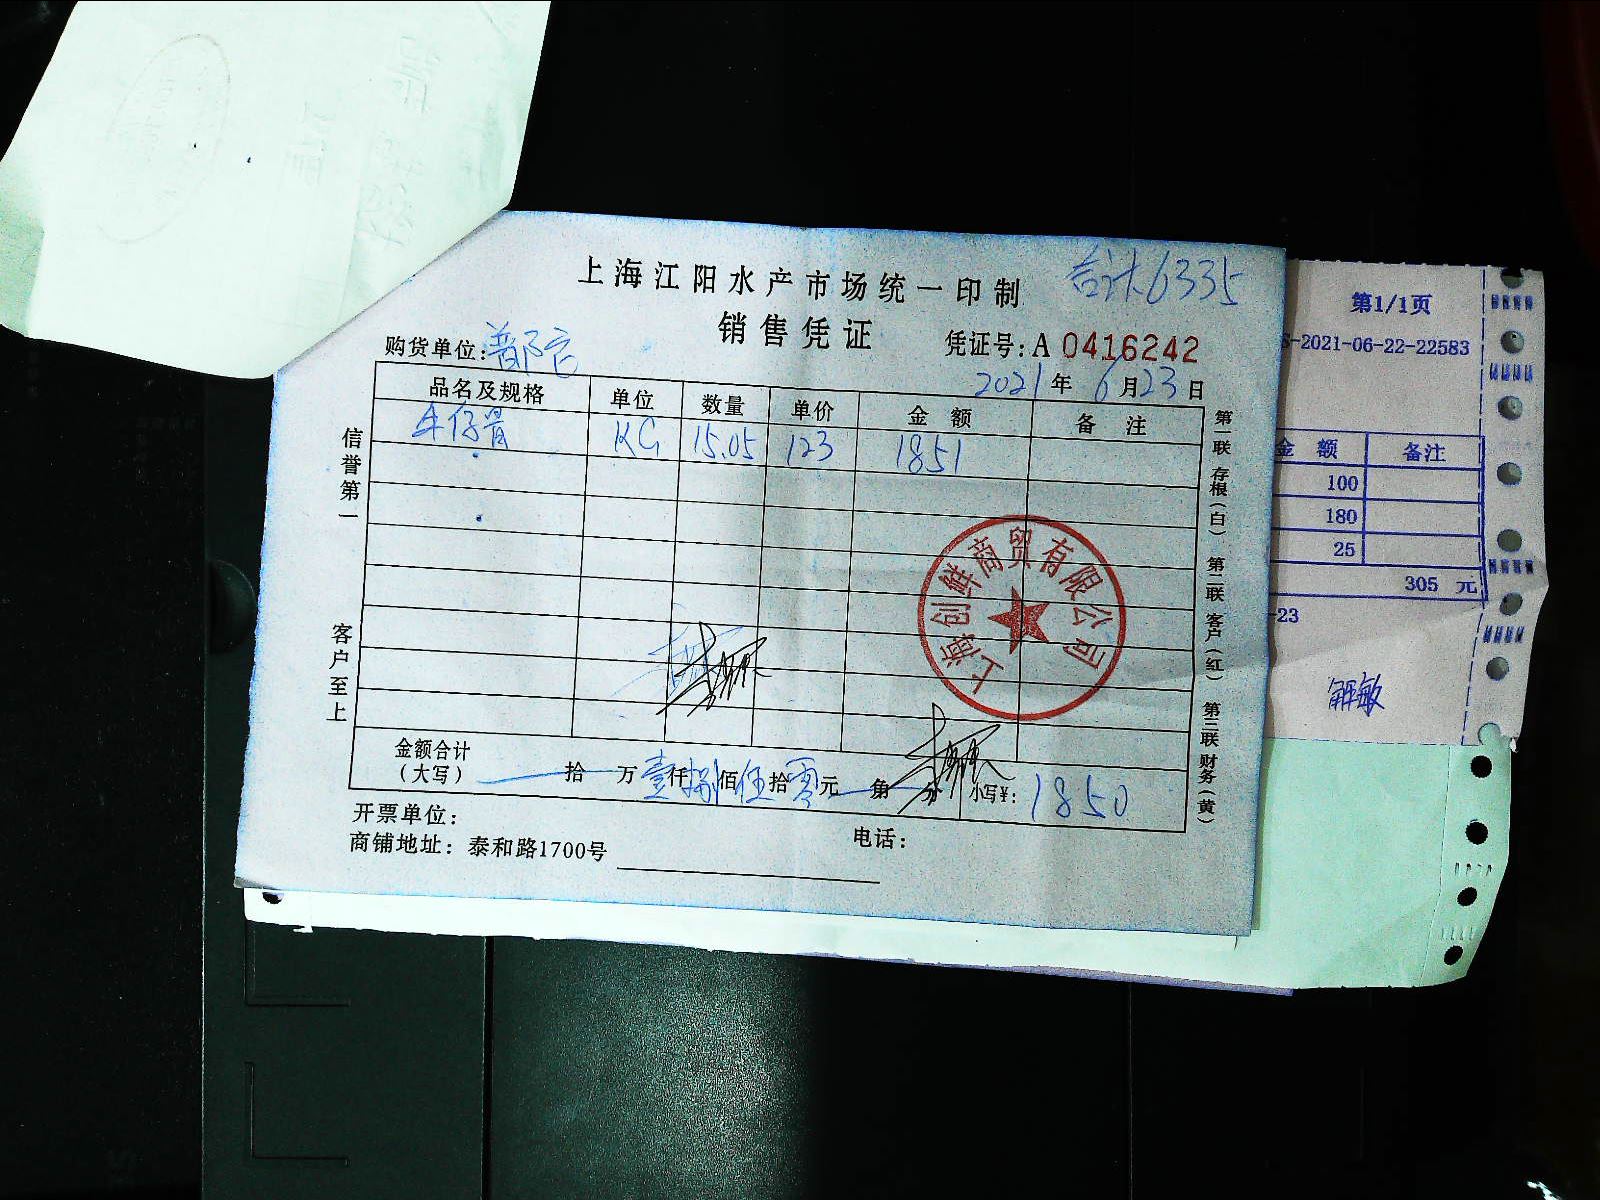 上海江阳水产市场统一印制
合计6335
销售凭证
购货单位：
凭证号：A 0416242
2021年6月23日
品名及规格 单位 数量 单价 金额 备注
牛仔骨 KG 15.05 123 1851
信誉第一
客户至上
第一联 存根（白） 第二联 客户（红） 第三联 财务（黄）
上海创鲜商贸有限公司
金额合计（大写） 拾 万 壹仟捌佰伍拾零元 角 分 小写¥：1850
开票单位：
商铺地址：泰和路1700号
电话：
第1/1页
S-2021-06-22-22583
金额 备注
100
180
25
305 元
-23
解敏